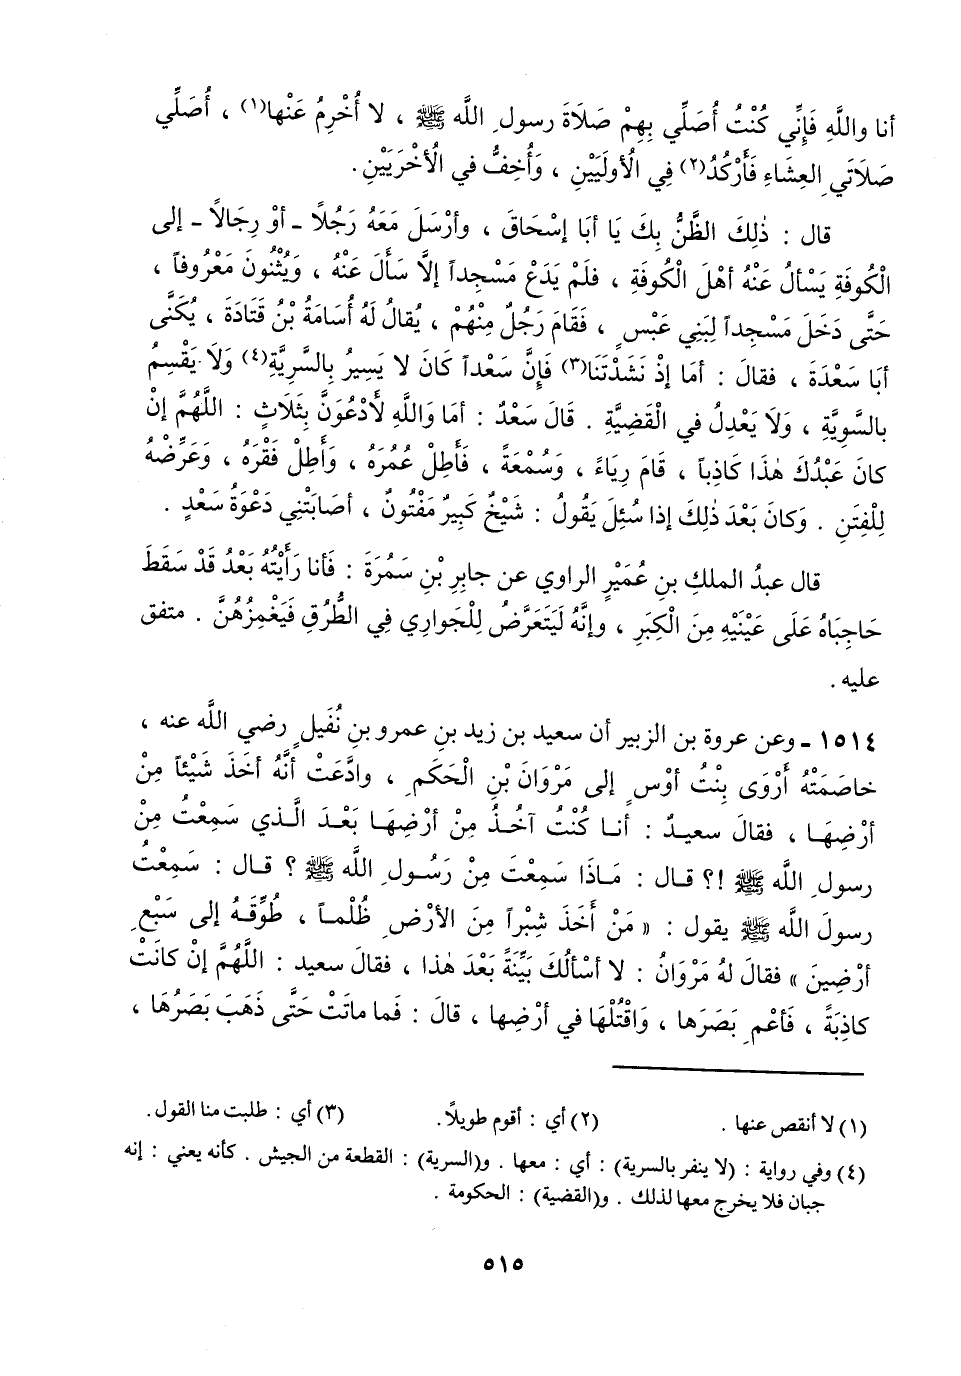 أنا واللَّهِ فَإِنِّي كُنْتُ أُصَلِّي بِهِمْ صَلَاةَ رسولِ اللَّه ﷺ ، لا أُخْرِمُ عَنْها(١) ، أُصَلِّي
صَلَاتَي العِشَاءِ فَأَرْكُدُ(٢) فِي الْأُولَيَيْنِ ، وَأُخِفُّ في الْأُخْرَيَيْنِ .
قال : ذٰلِكَ الظَّنُّ بِكَ يَا أبَا إسْحَاقَ ، وأرْسَلَ مَعَهُ رَجُلاً ـ أوْ رِجَالاً ـ إلى
الْكُوفَةِ يَسْألُ عَنْهُ أهْلَ الْكُوفَةِ ، فلَمْ يَدَعْ مَسْجِداً إلاَّ سَألَ عَنْهُ ، وَيُثْنُونَ مَعْرُوفاً ،
حَتَّى دَخَلَ مَسْجِداً لِبَنِي عَبْسٍ ، فَقَامَ رَجُلٌ مِنْهُمْ ، يُقالُ لَهُ أُسَامَةُ بْنُ قَتَادَةَ ، يُكَنَّى
أبَا سَعْدَةَ ، فقالَ : أمَا إذْ نَشَدْتَنَا(٣) فَإِنَّ سَعْداً كَانَ لا يَسِيرُ بِالسَّرِيَّةِ(٤) وَلَا يَقْسِمُ
بالسَّوِيَّةِ ، وَلَا يَعْدِلُ في الْقَضِيَّةِ . قَالَ سَعْدٌ : أمَا وَاللَّهِ لأدْعُوَنَّ بِثَلَاثٍ : اللَّهُمَّ إنْ
كانَ عَبْدُكَ هٰذَا كَاذِباً ، قَامَ رِيَاءً ، وَسُمْعَةً ، فَأَطِلْ عُمُرَهُ ، وَأَطِلْ فَقْرَهُ ، وَعَرِّضْهُ
لِلْفِتَنِ . وَكانَ بَعْدَ ذٰلِكَ إذا سُئِلَ يَقُولُ : شَيْخٌ كَبِيرٌ مَفْتُونٌ ، أصَابَتْنِي دَعْوَةُ سَعْدٍ .
قال عبدُ الملكِ بنِ عُمَيْرٍ الراوي عن جابِرِ بْنِ سَمُرَةَ : فَأنا رَأَيْتُهُ بَعْدُ قَدْ سَقَطَ
حَاجِبَاهُ عَلَى عَيْنَيْهِ مِنَ الْكِبَرِ ، وإنَّهُ لَيَتَعَرَّضُ لِلْجَوارِي فِي الطُّرُقِ فَيَغْمِزُهُنَّ . متفق
عليه .
١٥١٤ ـ وعن عروة بن الزبير أن سعيد بن زيد بنِ عمرو بنِ نُفَيلٍ رضي اللَّه عنه ،
خاصَمَتْهُ أَرْوَى بِنْتُ أوْسٍ إلى مَرْوَانَ بْنِ الْحَكَمِ ، وادَّعَتْ أنَّهُ أخَذَ شَيْئاً مِنْ
أرْضِهَا ، فقالَ سعيدٌ : أنا كُنْتُ آخُذُ مِنْ أرْضِهَا بَعْدَ الَّذي سَمِعْتُ مِنْ
رسولِ اللَّه ﷺ !؟ قال : مَاذَا سَمِعْتَ مِنْ رَسُولِ اللَّه ﷺ ؟ قال : سَمِعْتُ
رسولَ اللَّه ﷺ يقول : « مَنْ أَخَذَ شِبْراً مِنَ الأرْضِ ظُلْماً ، طُوِّقَهُ إلى سَبْعِ
أرْضِينَ » فقالَ لهُ مَرْوَانُ : لا أسْألُكَ بَيِّنَةً بَعْدَ هٰذا ، فقال سعيد : اللَّهُمَّ إنْ كانَتْ
كاذِبَةً ، فَأعْمِ بَصَرَها ، وَاقْتُلْهَا في أرْضِها ، قالَ : فَما ماتَتْ حَتَّى ذَهَبَ بَصَرُهَا ،
(١) لا أنقص عنها . (٢) أي : أقوم طويلاً. (٣) أي : طلبت منا القول .
(٤) وفي رواية : (لا ينفر بالسرية) : أي : معها . و(السرية) : القطعة من الجيش . كأنه يعني : إنه
جبان فلا يخرج معها لذلك . و(القضية) : الحكومة .
٥١٥